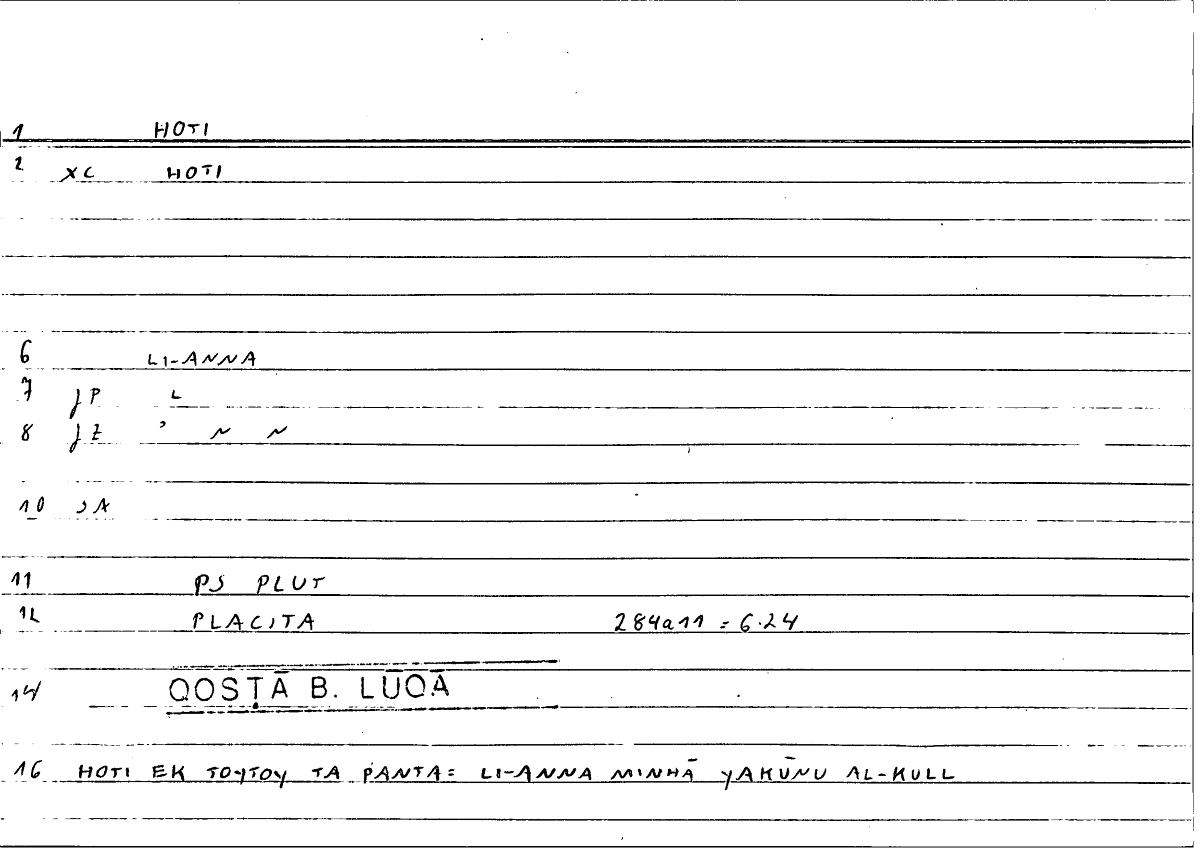 1 HOTI
2 XC HOTI
6 LI-ANNA
7 JP L
8 JZ ʾ N N
10 JA
11 PS PLUT
12 PLACITA 284a11 = 6.24
14 QOSṬĀ B. LŪQĀ
16 HOTI EK TOYTOY TA PANTA = LI-ANNA MINHĀ YAKŪNU AL-KULL